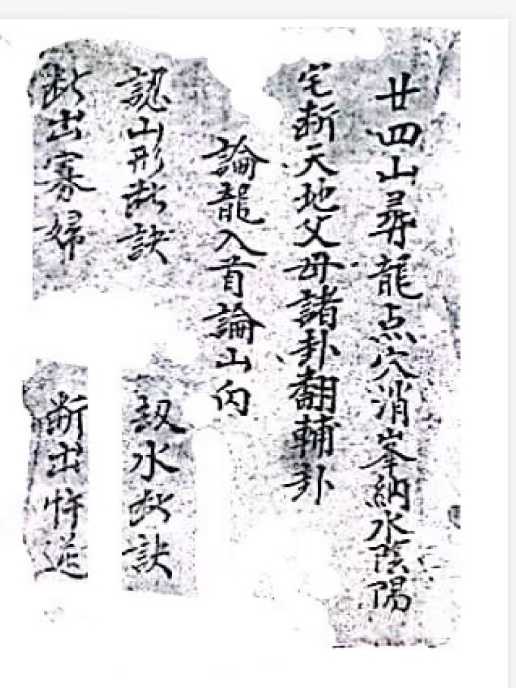 廿四山尋龍点穴消峯納水陰陽
宅斷天地父母諸卦翻輔卦
論龍入首論山向
認山形断訣
認水断訣
断出寡婦
断出忤逆